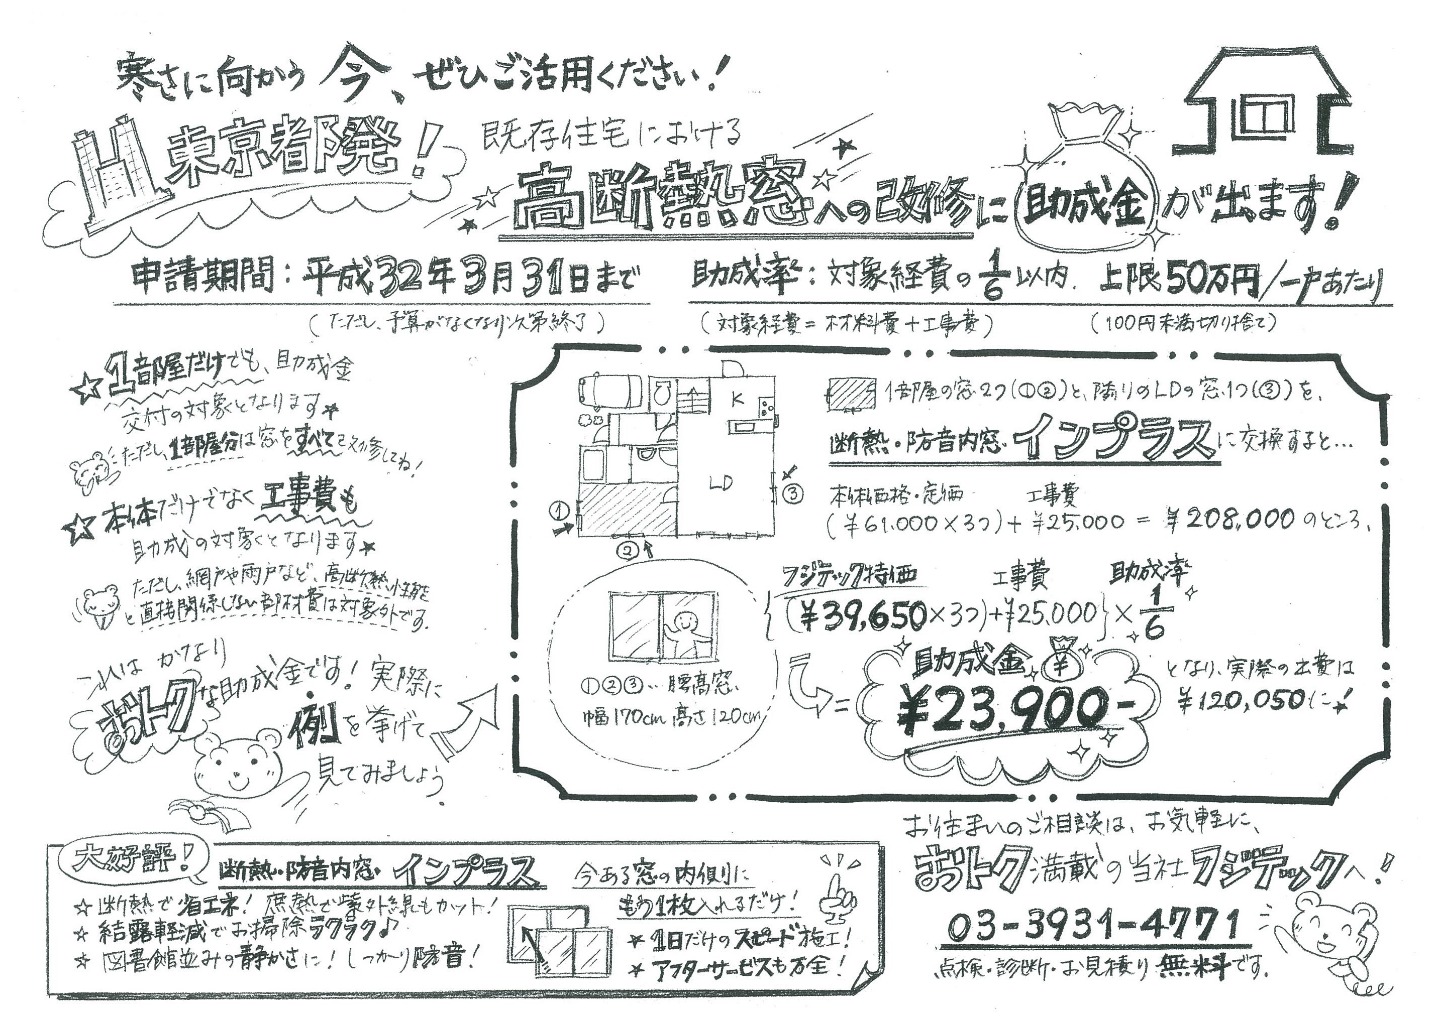 寒さに向かう 今、ぜひご活用ください!
東京都発!
既存住宅における
高断熱窓への改修に助成金が出ます!
申請期間:平成32年3月31日まで
(ただし、予算がなくなり次第終了)
助成率:対象経費の1/6以内. 上限50万円/一戸あたり
(対象経費=材料費+工事費)
(100円未満切り捨て)
☆1部屋だけでも、助成金
交付の対象となります★
ただし、1部屋分は窓をすべて改修してね!
☆本体だけでなく工事費も
助成の対象となります★
ただし、網戸や雨戸など、高断熱性能
と直接関係しない部材費は対象外です.
これは かなり
おトクな助成金です! 実際に
例を挙げて
見てみましょう
K
LD
①
②
③
1部屋の窓2つ(①②)と、隣りのLDの窓1つ(③)を、
断熱・防音内窓・インプラスに交換すると…
本体価格・定価 工事費
(¥61,000×3つ)+¥25,000=¥208,000のところ、
フジテック特価 工事費 助成率
{(¥39,650×3つ)+¥25,000}×1/6
=
助成金 ¥
¥23,900-
となり、実際の出費は
¥120,050に★!
①②③…腰高窓.
幅170cm 高さ120cm
大好評!
断熱・防音内窓・インプラス
☆断熱で省エネ! 遮熱で紫外線もカット!
☆結露軽減でお掃除ラクラク♪
☆図書館並みの静かさに!しっかり防音!
今ある窓の内側に
もう1枚入れるだけ!
★1日だけのスピード施工!
★アフターサービスも万全!
お住まいのご相談は、お気軽に、
おトク満載の当社フジテックへ!
03-3931-4771
点検・診断・お見積り無料です.